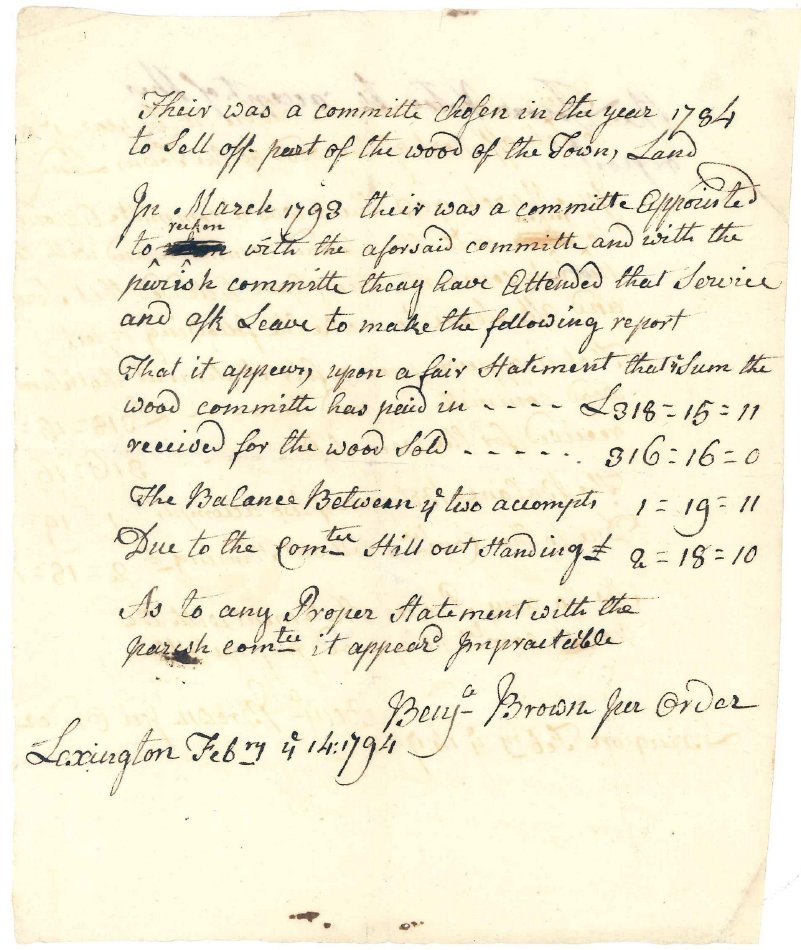 Their was a committe chosen in the year 1784
to Sell off part of the wood of the Town, Land
In March 1793 their was a committe Appointed
to reckon with the aforsaid committe and with the
parish committe theay have Attended that Service
and ask Leave to make the following report
That it appears upon a fair Statement that ye Sum the
wood committe has paid in - - - - £318=15=11
received for the wood Sold - - - - - - 316=16=0
The Balance Between ye two accompts 1=19=11
Due to the Comtee Still out Standing £ 2=18=10
As to any Proper Statement with the
parish comtee it appeard Impractible
Benja Brown per Order
Lexington Febry ye 14:1794